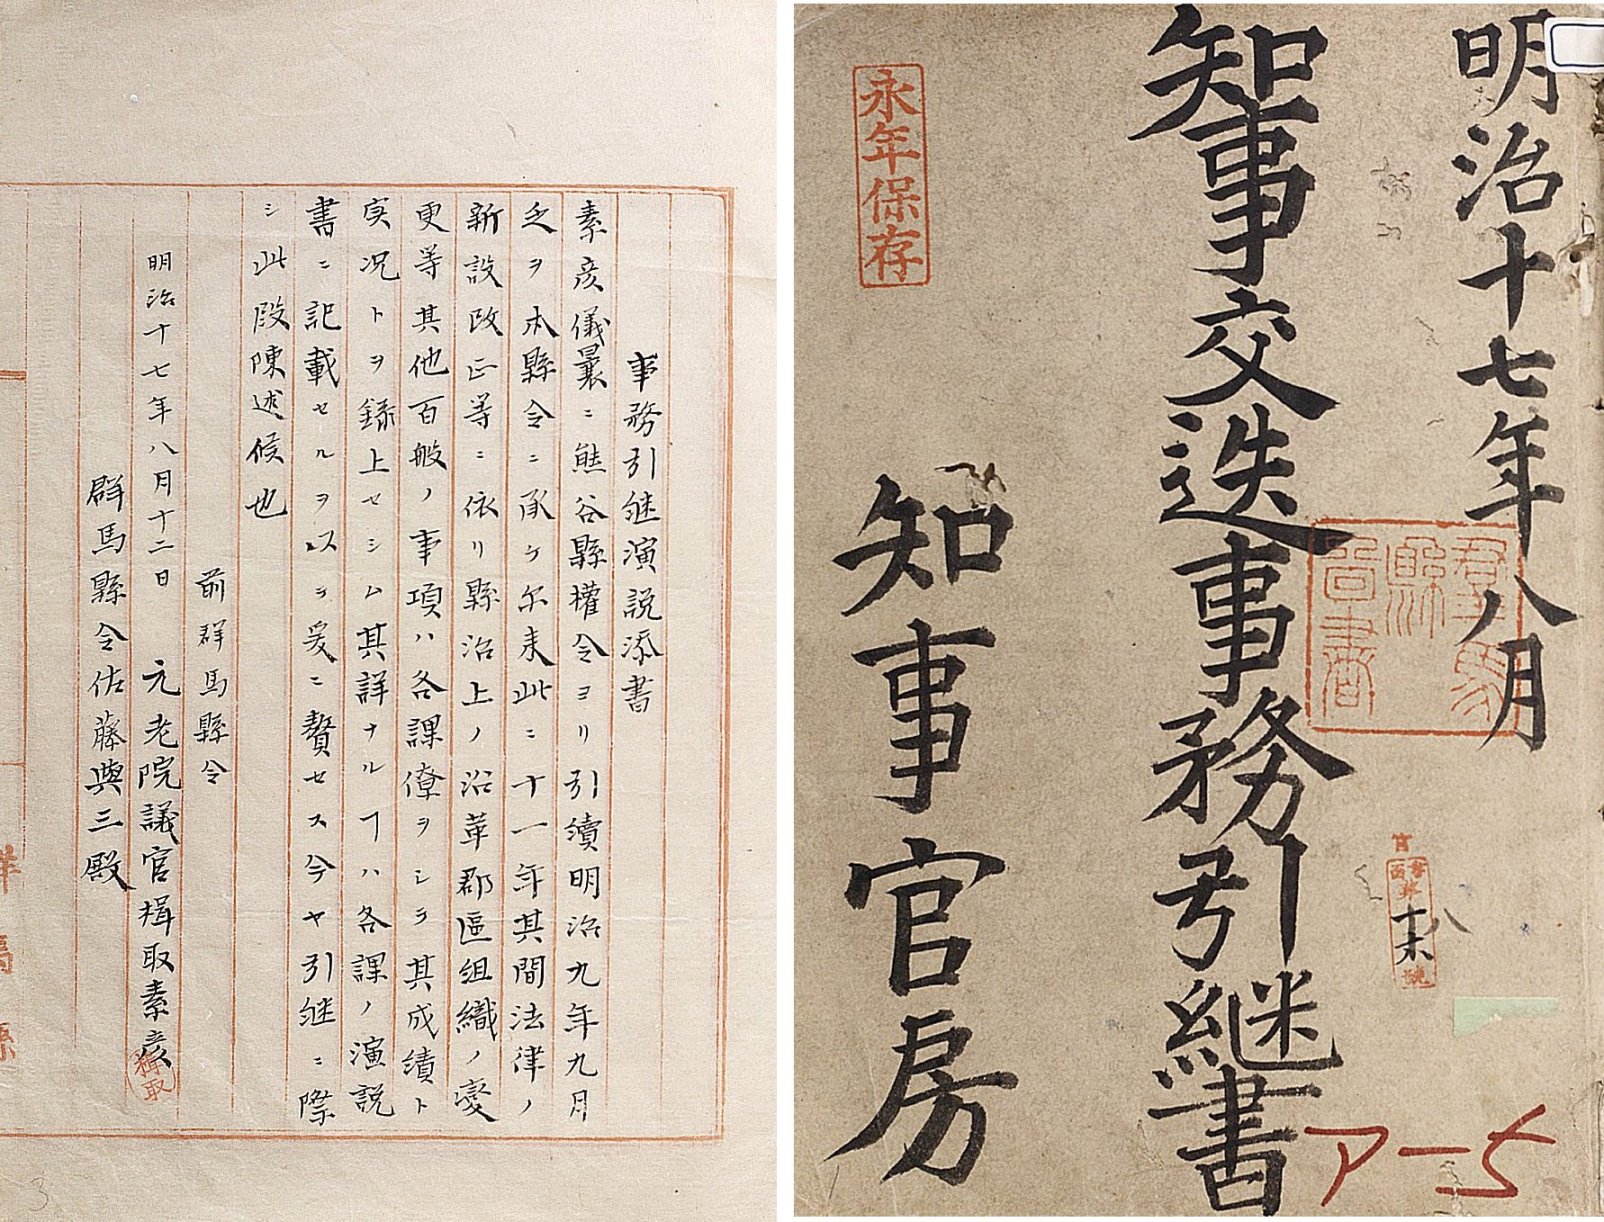 明治十七年八月
知事交迭事務引継書
知事官房
永年保存
群馬縣圖書
ア一5
事務引継演説添書
素彦儀曩ニ熊谷縣權令ヨリ引續明治九年九月
乏ヲ本縣令ニ承ケ尓来此ニ十一年其間法律ノ
新設改正等ニ依リ縣治上ノ沿革郡區組織ノ変
更等其他百般ノ事項ハ各課僚ヲシテ其成績ト
実况トヲ録上セシム其詳ナルヿハ各課ノ演説
書ニ記載セルヲ以テ爰ニ贅セス今ヤ引継ニ際
シ此段陳述候也
前群馬縣令
明治十七年八月十二日 元老院議官楫取素彦
楫取
群馬縣令佐藤與三殿
群馬縣
3